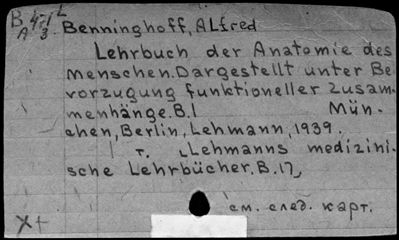 B 4-12
A 3
Benninghoff, Alfred
Lehrbuch der Anatomie des
Menschen. Dargestellt unter Be
vorzugung funktioneller Zusam-
menhänge. B. I Mün-
chen, Berlin, Lehmann, 1939.
I т. „Lehmanns medizini-
sche Lehrbücher. B. 17„
см. след. карт.
X+